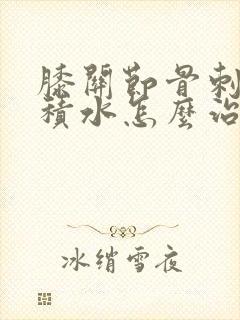 膝關節骨刺
積水怎麼治
冰綃雪夜